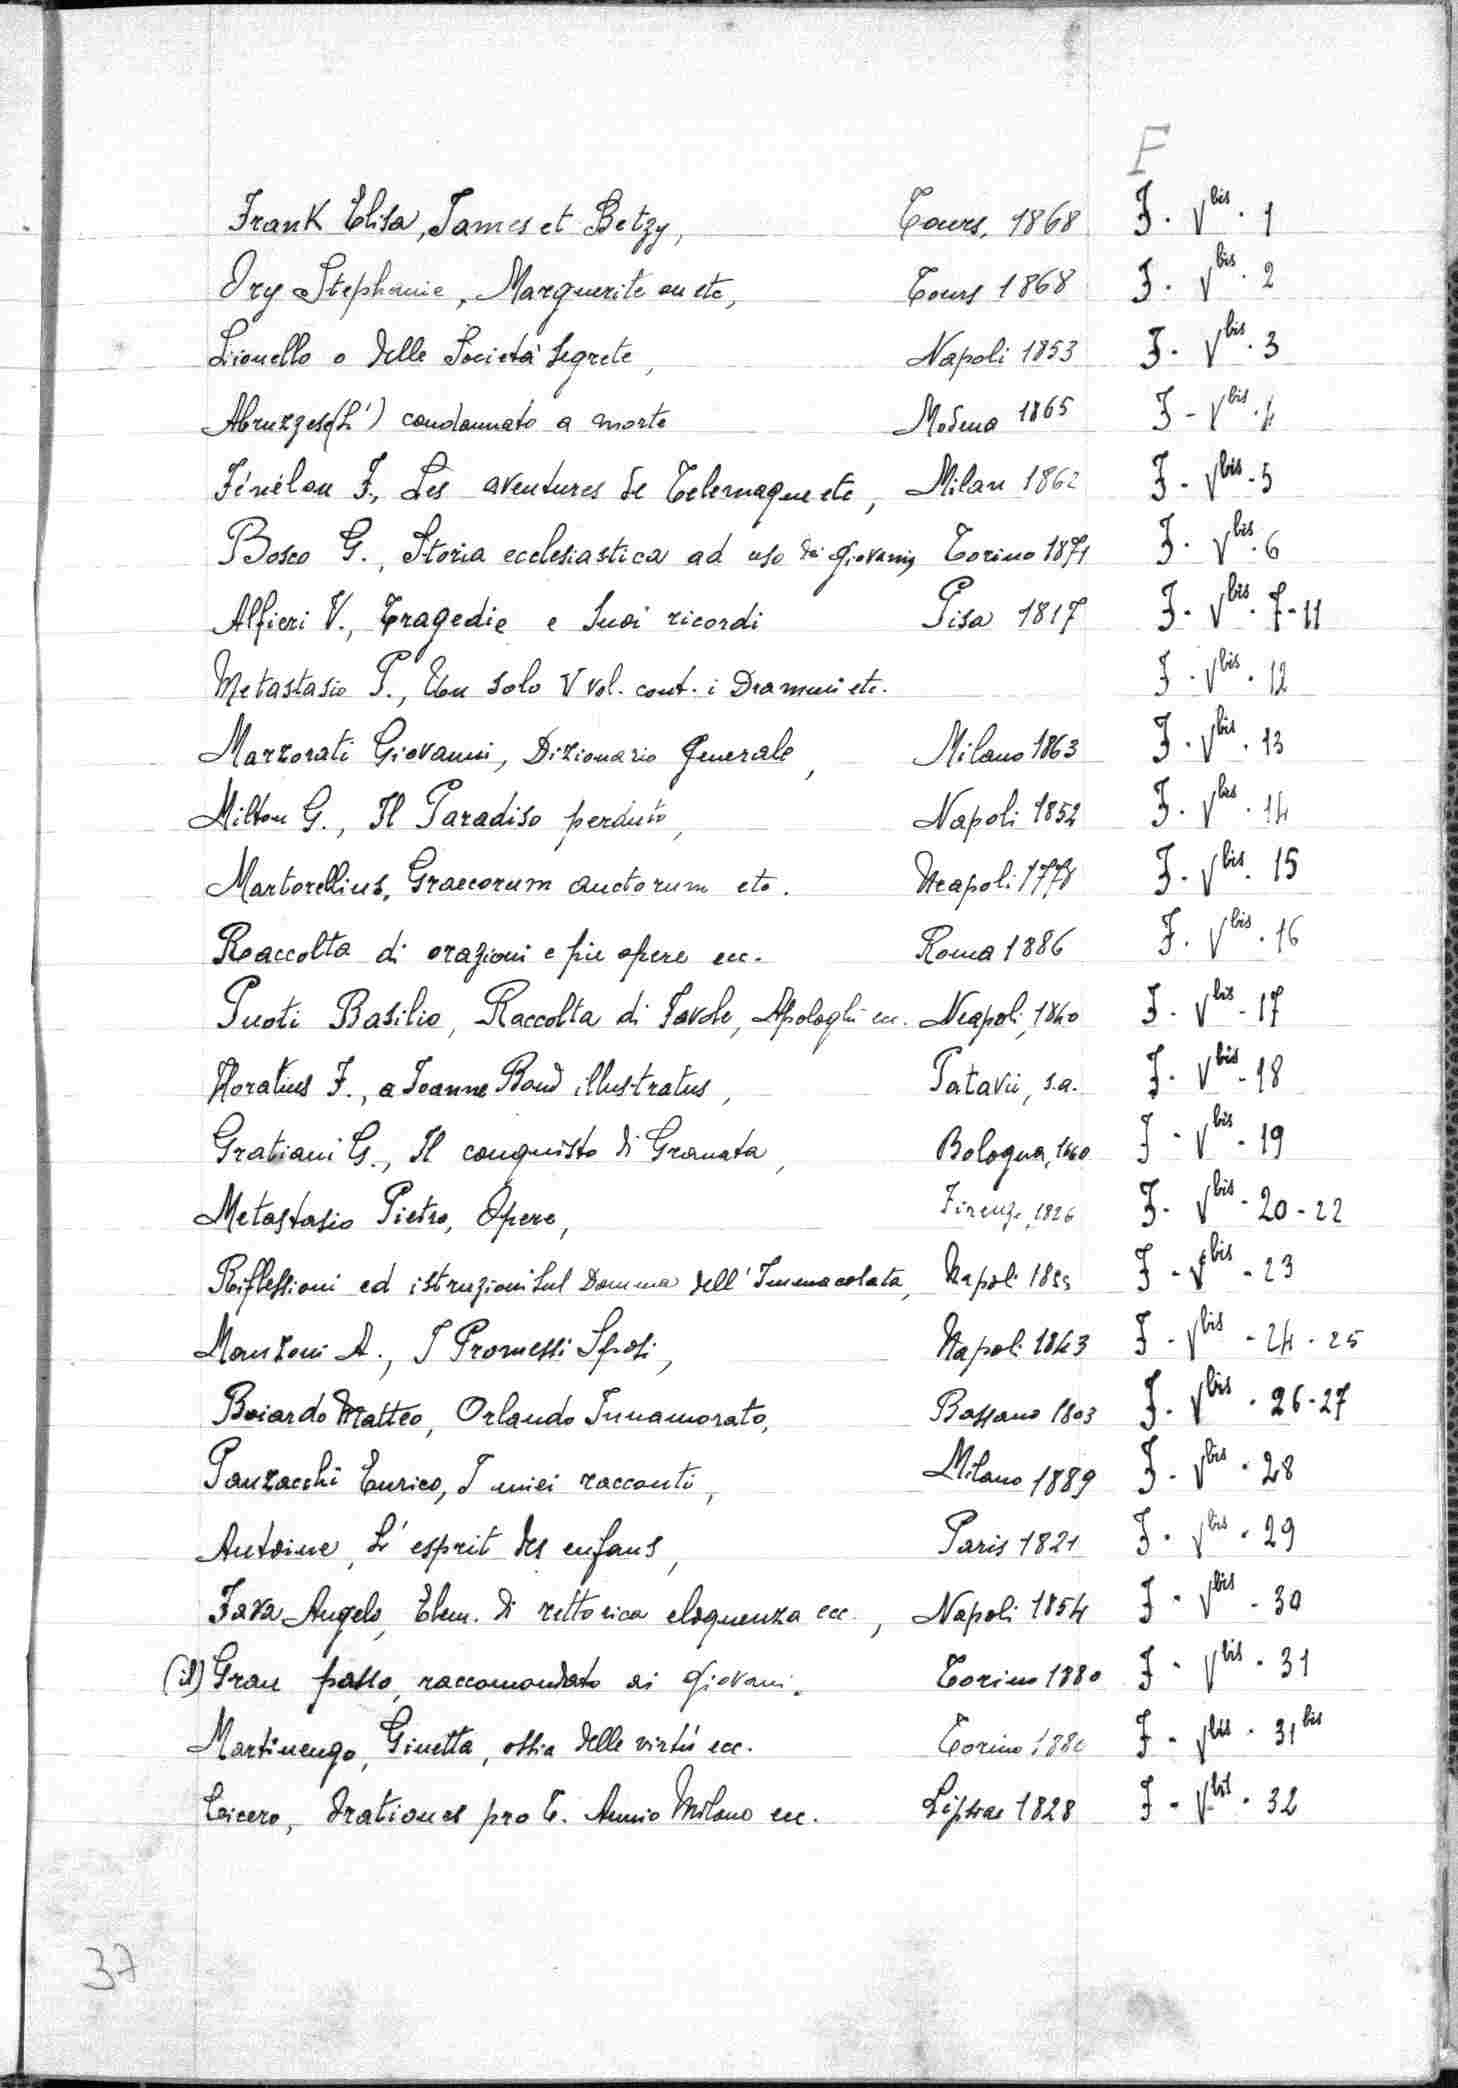 F
Frank Elisa, James et Betzy, Tours, 1868 F. V bis. 1
Ory Stephanie, Marguerite ou etc, Tours 1868 F. V bis. 2
Lionello o delle Società Segrete, Napoli 1853 F. V bis. 3
Abruzzese (L') condannato a morte Modena 1865 F - V bis. 4
Fénélon F., Les aventures de Telemaque etc, Milan 1862 F - V bis - 5
Bosco G., Storia ecclesiastica ad uso dei giovani, Torino 1871 F. V bis. 6
Alfieri V., Tragedie e Suoi ricordi Pisa 1817 F. V bis. 7-11
Metastasio P., Un solo V vol. cont. i Drammi etc. F. V bis. 12
Marzorati Giovanni, Dizionario generale, Milano 1863 F. V bis. 13
Milton G., Il Paradiso perduto, Napoli 1852 F. V bis. 14
Martorellius, Graecorum auctorum etc. Neapoli 1778 F. V bis. 15
Raccolta di orazioni e pie opere ecc. Roma 1886 F. V bis. 16
Puoti Basilio, Raccolta di Favole, Apologhi ecc. Neapoli, 1840 F. V bis - 17
Horatius F., a Joanne Bond illustratus, Patavii, s.a. F. V bis - 18
Gratiani G., Il conquisto di Granata, Bologna, F - V bis - 19
Metastasio Pietro, Opere, Firenze, 1826 F. V bis - 20 - 22
Riflessioni ed istruzioni sul Domma dell'Immacolata, Napoli F - V bis - 23
Manzoni A., I Promessi Sposi, Napoli 1843 F - V bis - 24 - 25
Boiardo Matteo, Orlando Innamorato, Bassano 1803 F. V bis. 26-27
Panzacchi Enrico, I miei racconti, Milano 1889 F - V bis. 28
Antoine, L'esprit des enfans, Paris 1821 F. V bis. 29
Fava Angelo, Elem. di rettorica eloquenza ecc., Napoli 1854 F - V bis - 30
(il) Gran passo, raccomandato ai giovani. Torino 1880 F - V bis. 31
Martinengo, Ginetta, ossia delle virtù ecc. Torino 1880 F - V bis. 31 bis
Cicero, Orationes pro T. Annio Milone ecc. Lipsiae 1828 F - V bis. 32
37